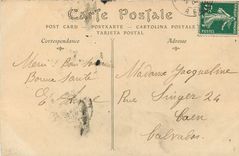 Carte Postale
POST CARD — POSTKARTE — CARTOLINA POSTALE
TARJETA POSTAL
Correspondance
Adresse
Merci
Bonne Santé
Madame Jacqueline
Rue Singer 24
Caen
Calvados.